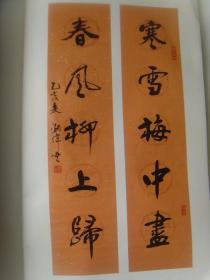 寒雪梅中盡
春風柳上歸
乙亥春